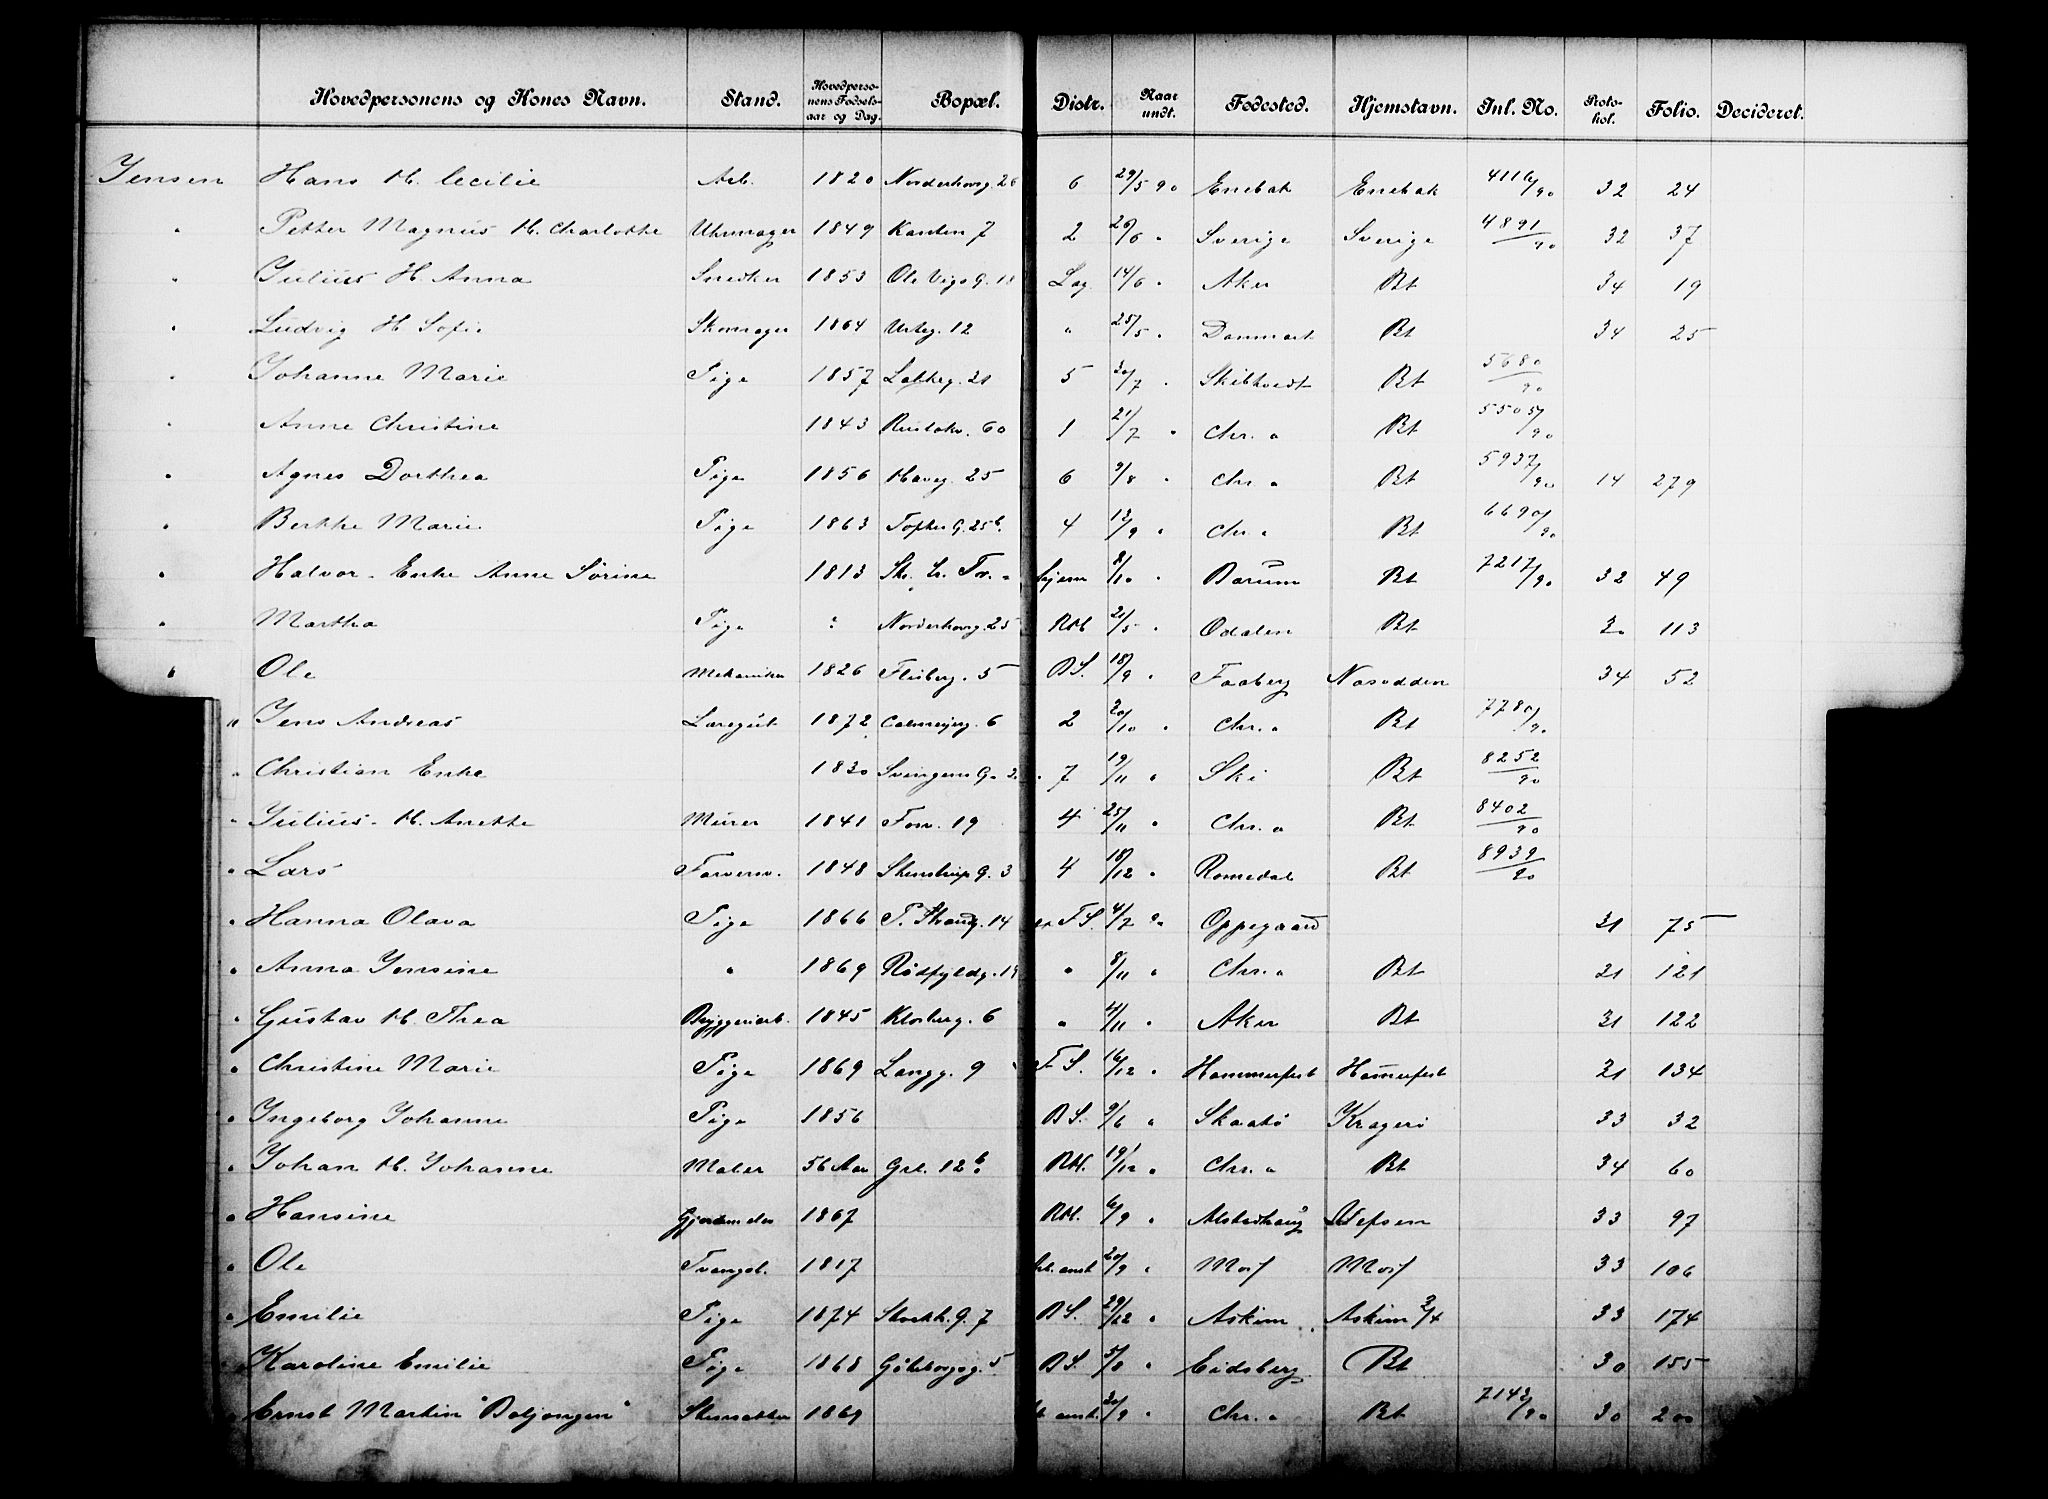 Hovedpersonens og Kones Navn. Stand. Hovedpersonens Fødselsaar og Dag. Bopæl. Distr. Naar undt. Fødested. Hjemstavn. Jnl. No. Protokol. Folio. Decideret.
Jensen Hans H. Cecilie Arb. 1820 Norderhovg. 26 6 29/5 90 Enebak Enebak 4116/90 32 24
" Petter Magnus H. Charlotte Uhrmager 1849 Kanten 7 2 26/6 " Sverige Sverige 4891/90 32 37
" Julius H. Anna Snedker 1853 Ole Vigs G. 18 Lag. 14/6 " Aker Bt 34 19
" Ludvig H Sofie Skomager 1864 Urteg. 12 " 25/5 " Danmark Bt 34 25
" Johanne Marie Pige 1857 21 5 30/7 " Skibtvedt Bt 5680/90
" Anne Christine 1843 Ruseløkv. 60 1 21/7 " Chr.a Bt 5505/90
" Agnes Dorthea Pige 1856 Haveg. 25 6 9/8 " Chr.a Bt 5937/90 14 279
" Berthe Marie Pige 1863 Tofhes G. 25b. 4 12/9 " Chr.a Bt 6690/90
" Halvor. Enke Anne Sørine 1813 hjem 8/10 " Bærum Bt 7217/90 32 49
" Martha Pige Norderhovg. 25 RH 21/5 " Odalen Bt 113
" Ole Mekaniker 1826 Flisberg. 5 BS. 18/9 " Faaberg Nesodden 34 52
" Jens Andreas Løregut 1872 Calmeyerg. 6 2 20/10 " Chr.a Bt 7780/90
" Christian Enke 1830 Svingens G. 7 19/11 " Ski Bt 8252/90
" Julius. H. Anette Murer 1841 Fosv. 19 4 25/11 " Chr.a Bt 8402/90
" Lars Farversv. 1848 Stenstrup G. 3 4 18/12 " Romedal Bt 8939/90
" Hanna Olava Pige 1866 T. Strandg. 14 FS. 4/7 90 Oppegaard 31 75
" Anna Jensine " 1869 Rødfyldg. 19 " 8/11 " Chr.a Bt 31 121
" Gustav H. Thea Bryggeriarb. 1845 Klosterg. 6 " 11/11 " Aker Bt 31 122
" Christine Marie Pige 1869 Langg. 9 FS. 16/12 " Hammerfest Hamerfest 31 134
" Ingeborg Johanne Pige 1856 BS. 9/6 " Skaatø Kragerø 33 32
" Johan H. Johanne Maler 56 Aar Grl. 12b RH. 19/12 " Chr.a Bt 34 60
" Hansine 1867 RH. 6/9 " Alstadhaug Vefsen 33 97
" Ole Tvangsl. 1817 anst 20/9 " Mosf Mosf 33 106
" Emilie Pige 1874 Storkk. G. 7 BS. 29/12 " Askim Askim 2/4 33 174
" Karoline Emilie Pige 1868 Göteborgsg. 5 BS. 5/8 " Eidsberg Bt 30 155
" Ernst Martin "Boljongen" Skomatter 1869 anst. 30/9 " Chr.a Bt 7142/90 30 200